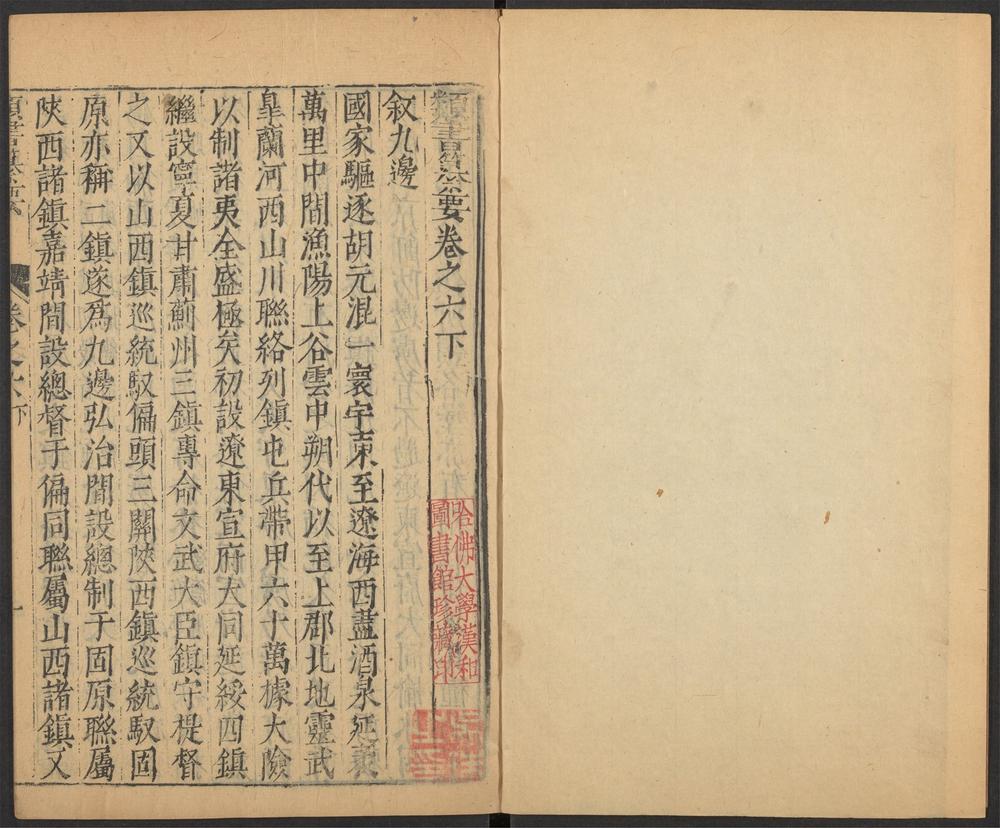 類書纂要卷之六下
叙九邊
國家驅逐胡元混一寰宇東至遼海西盡酒泉延袤
萬里中間漁陽上谷雲中朔代以至上郡北地靈武
臯蘭河西山川聯絡列鎮屯兵帶甲六十萬據大險
以制諸夷全盛極矣初設遼東宣府大同延綏四鎮
繼設寧夏甘肅薊州三鎮專命文武大臣鎮守提督
之又以山西鎮巡統馭偏頭三關陝西鎮巡統馭固
原亦稱二鎮遂爲九邊弘治間設總制于固原聯屬
陝西諸鎮嘉靖間設總督于偏同聯屬山西諸鎮又
類書纂要
卷之六下
一
哈佛大學漢和
圖書館珍藏印